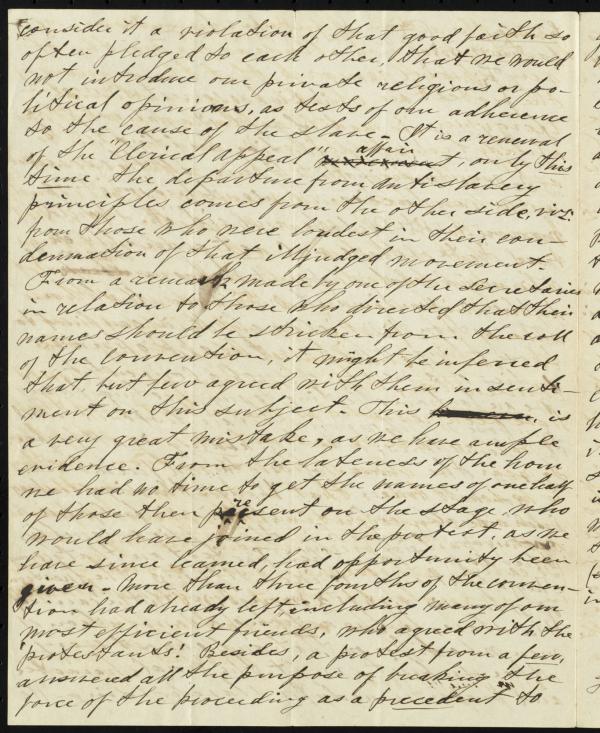 consider it a violation of that good faith so
often pledged to each other, that we would
not introduce our private religious or po-
litical opinions, as tests of our adherence
to the cause of the slave. It is a renewal
of the "Clerical appeal" affair, only this
time the departure from antislavery
principles comes from the other side, viz:
from those who were loudest in their con-
demnation of that illjudged movement.
From a remark made by one of the secretaries
in relation to those who directed that their
names should be stricken from the roll
of the convention, it might be inferred
that but few agreed with them in senti-
ment on this subject. This is
a very great mistake, as we have ample
evidence. From the lateness of the hour
we had no time to get the names of one half
of those then present on the stage who
would have joined in the protest, as we
have since learned, had opportunity been
given. More than three fourths of the conven-
tion had already left including many of our
most efficient friends, who agreed with the
'protestants'! Besides, a protest from a few,
answered all the purpose of breaking the
force of the proceeding as a precedent to